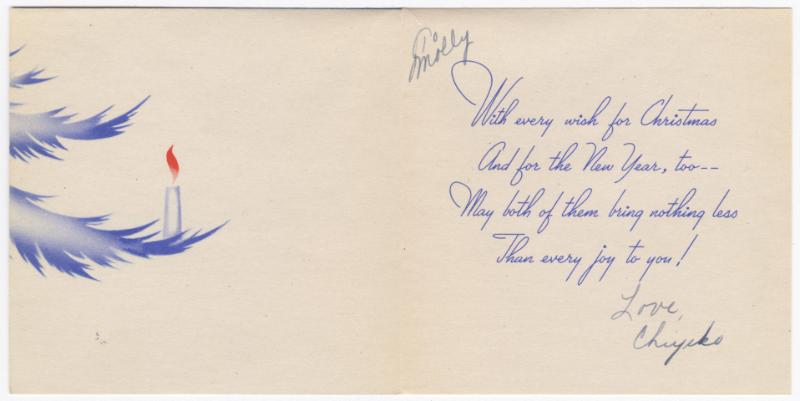 To
Molly
With every wish for Christmas
And for the New Year, too--
May both of them bring nothing less
Than every joy to you!
Love,
Chiyeko